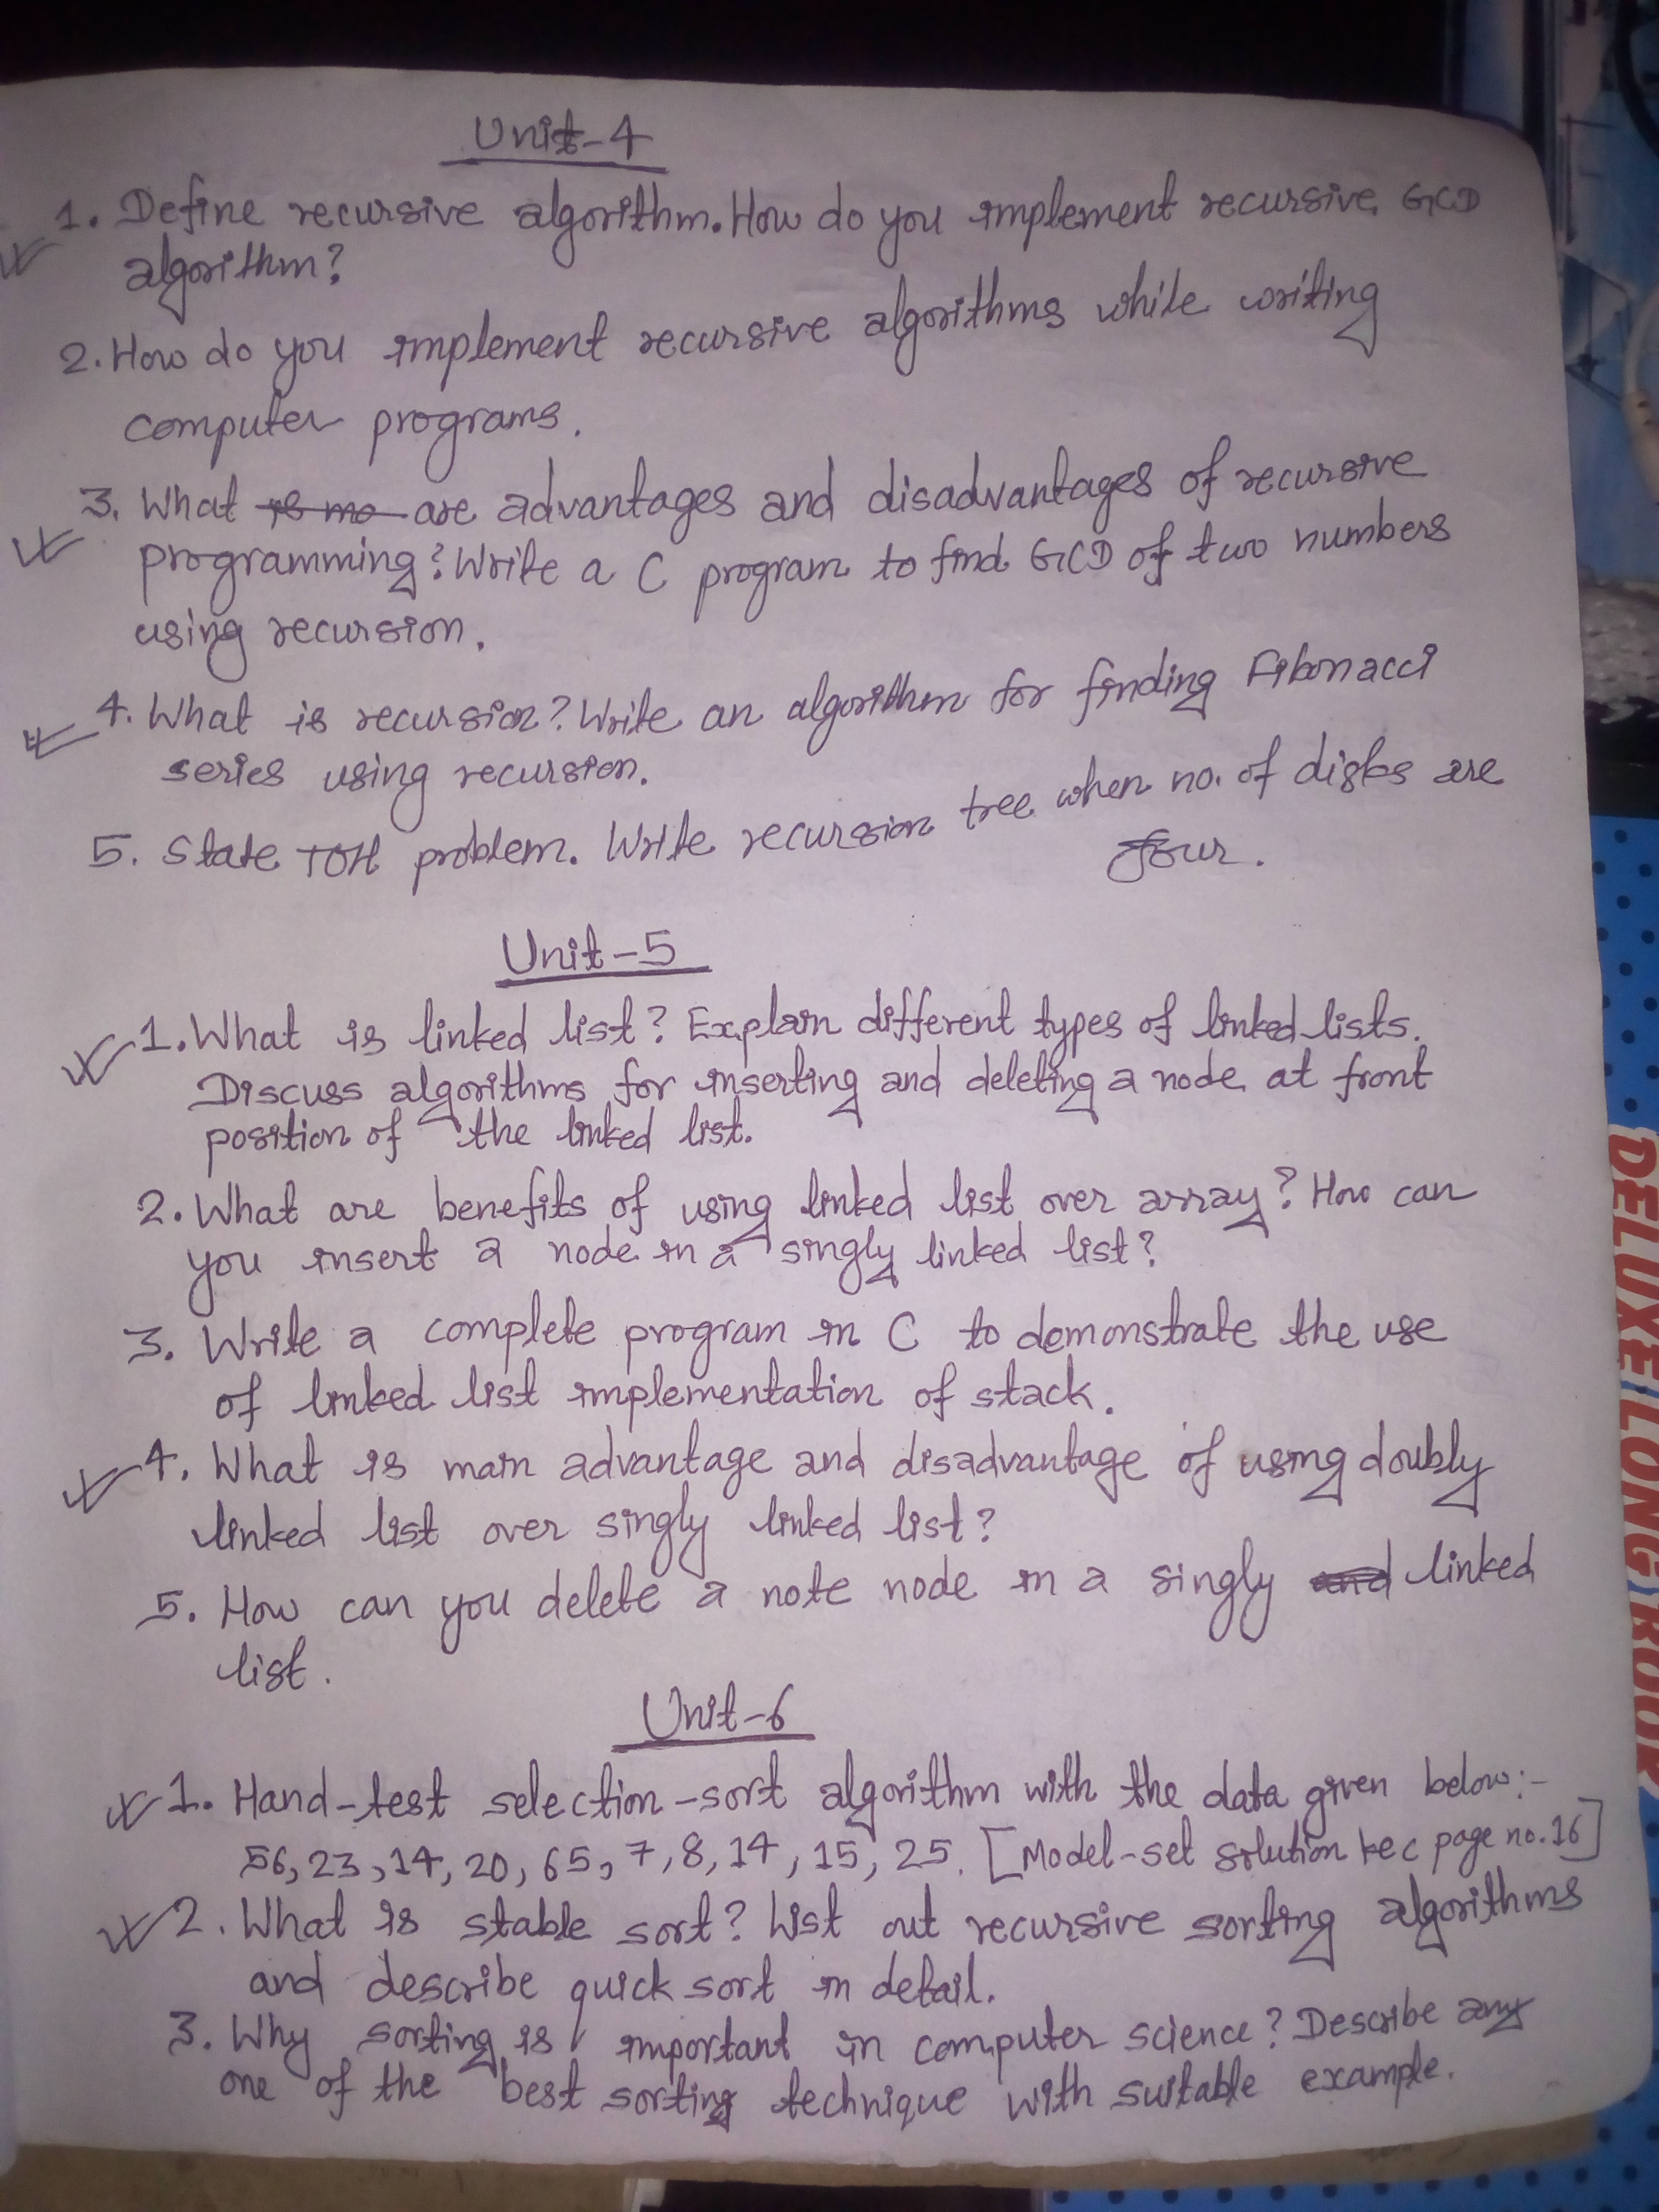 Unit-4
1. Define recursive algorithm. How do you implement recursive GCD
algorithm?
2. How do you implement recursive algorithms while writing
computer programs.
3. What is mo are advantages and disadvantages of recursive
programming? Write a C program to find GCD of two numbers
using recursion.
4. What is recursion? Write an algorithm for finding Fibonacci
series using recursion.
5. State TOH problem. Write recursion tree when no. of disks are
four.
Unit-5
1. What is linked list? Explain different types of linked lists.
Discuss algorithms for inserting and deleting a node at front
position of the linked list.
2. What are benefits of using linked list over array? How can
you insert a node in a singly linked list?
3. Write a complete program in C to demonstrate the use
of linked list implementation of stack.
4. What is main advantage and disadvantage of using doubly
linked list over singly linked list?
5. How can you delete a note node in a singly and linked
list.
Unit-6
1. Hand-test selection-sort algorithm with the data given below:-
56, 23, 14, 20, 65, 7, 8, 14, 15, 25. [Model-set solution kec page no. 16]
2. What is stable sort? List out recursive sorting algorithms
and describe quick sort in detail.
3. Why sorting is important in computer science? Describe any
one of the best sorting technique with suitable example.
DELUXE LONG BOOK